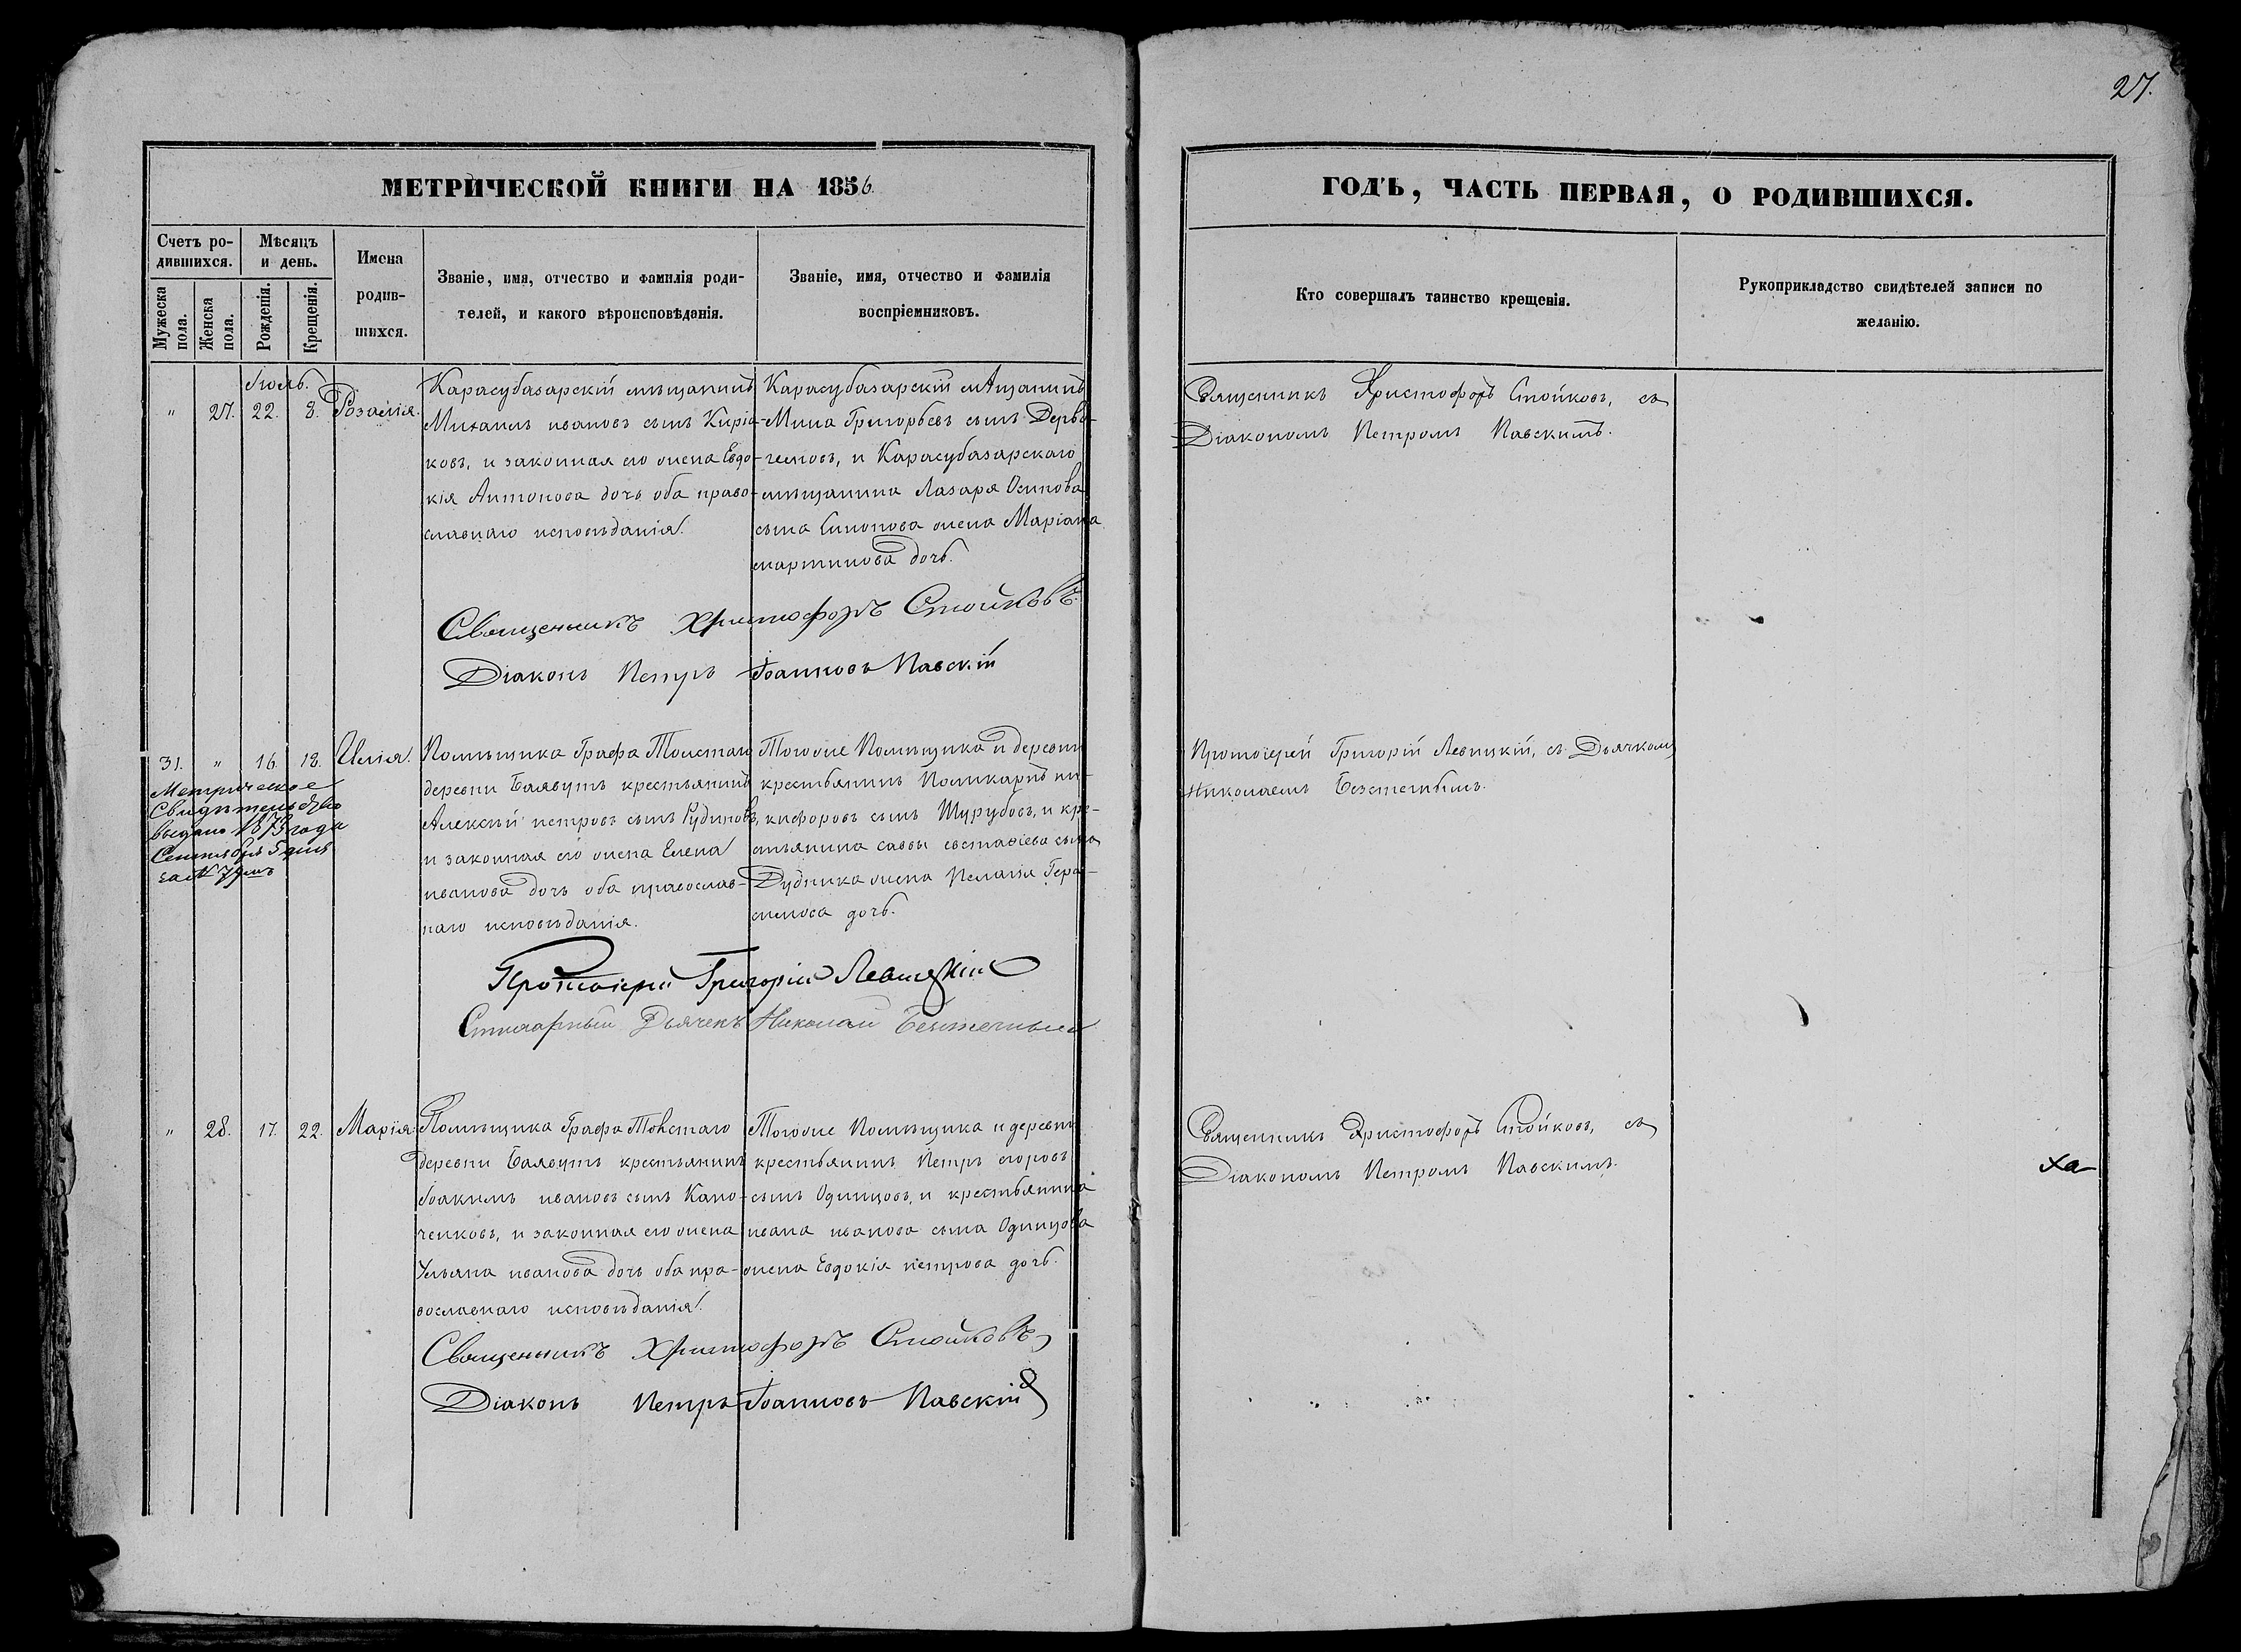 27.
МЕТРИЧЕСКОЙ КНИГИ НА 1856
ГОДЪ, ЧАСТЬ ПЕРВАЯ, О РОДИВШИХСЯ.
Счетъ ро-
дившихся.
Мужеска
пола.
Женска
пола.
Мѣсяцъ
и день.
Рожденія.
Крещенія.
Имена
родив-
шихся.
Званіе, имя, отчество и фамилія роди-
телей, и какого вѣроисповѣданія.
Званіе, имя, отчество и фамилія
воспріемниковъ.
Кто совершалъ таинство крещенія.
Рукоприкладство свидѣтелей записи по
желанію.
Іюль.
" 27. 22. 8. Розалія.
Карасубазарскій мѣщанинъ
Михаилъ ивановъ сынъ Киріа-
ковъ, и законная его жена Евдо-
кія Антонова дочь оба право-
славнаго исповѣданія.
Карасубазарскій мѣщанинъ
Мина Григорьевъ сынъ
и Карасубазарскаго
мѣщанина Лазаря Осипова
сына жена Маріана
мартинова дочь.
Священникъ Христофоръ Стойковъ, съ
Діакономъ Петромъ Павскимъ.
Священникъ Христофоръ Стойковъ.
Діаконъ Петръ Іоанновъ Павскій
31. " 16. 18. Илія.
Метрическое
Свидѣтельство
выдано 1873 года
Сентября 5 дня
за №
Помѣщика Графа Толстаго
деревни Баявутъ крестьянинъ
Алексѣй петровъ сынъ Рудиковъ,
и законная его жена Елена
иванова дочь оба православ-
наго исповѣданія.
Тогоже Помѣщика и деревни
крестьянинъ Поликарпъ ни-
кифоровъ сынъ Шурубовъ, и кре-
стьянина саввы евстафіева сына
Дудника жена Пелагія Гера-
симова дочь.
Протоіерей Григорій Левицкій, съ Дьячкомъ
Николаемъ
Протоіерей Григорій Левицкій
Дьячекъ Николай
" 28. 17. 22. Марія.
Помѣщика Графа Толстаго
деревни Баявутъ крестьянинъ
Іоакимъ ивановъ сынъ Капо-
ченковъ, и законная его жена
Ульяна иванова дочь оба пра-
вославнаго исповѣданія.
Тогоже Помѣщика и деревни
крестьянинъ Петръ егоровъ
сынъ Одинцовъ, и крестьянина
ивана иванова сына Одинцова
жена Евдокія петрова дочь.
Священникъ Христофоръ Стойковъ, съ
Діакономъ Петромъ Павскимъ.
ха
Священникъ Христофоръ Стойковъ
Діаконъ Петръ Іоанновъ Павскій